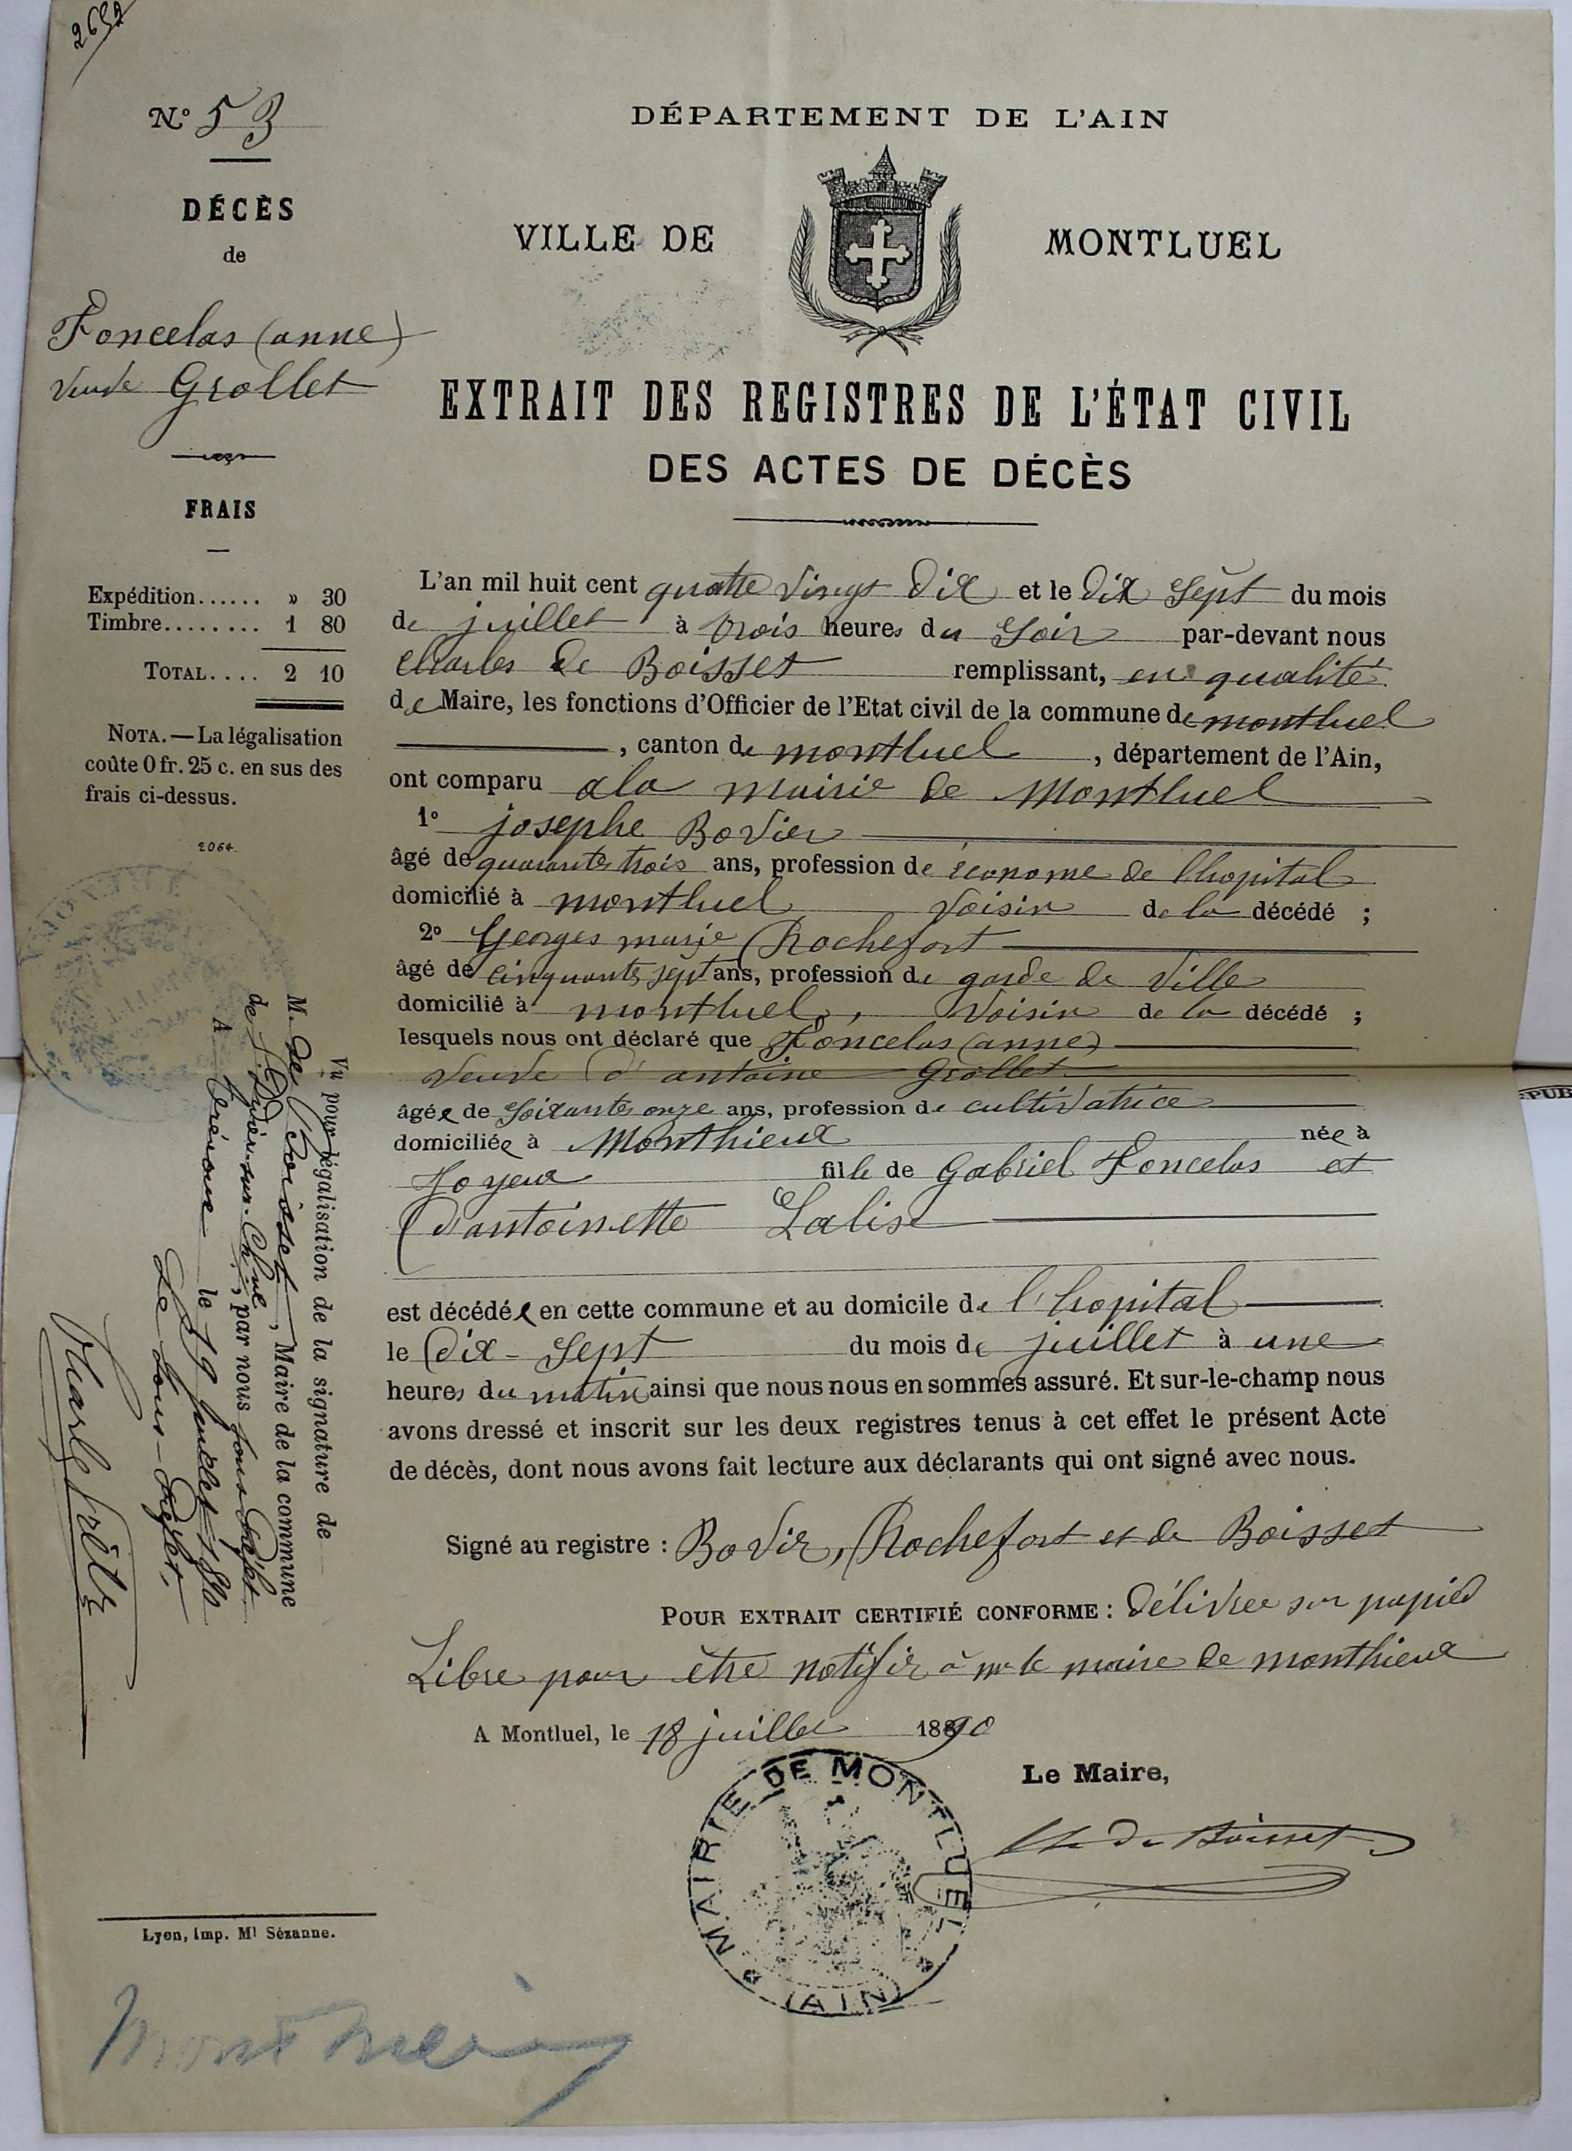 2652
N° 53
DÉCÈS
de
Foncelas (anne)
veuve Grollet
FRAIS
Expédition...... » 30
Timbre........ 1 80
TOTAL.... 2 10
NOTA. — La légalisation
coûte 0 fr. 25 c. en sus des
frais ci-dessus.
2064
Vu pour légalisation de la signature de
M. de Boisset, Maire de la commune
de, par nous sous Préfet
A Trévoux le 19 Juillet 1890
Le Sous-Préfet.
Lyon, imp. Ml Sézanne.
DÉPARTEMENT DE L'AIN
VILLE DE MONTLUEL
EXTRAIT DES REGISTRES DE L'ÉTAT CIVIL
DES ACTES DE DÉCÈS
L'an mil huit cent quatre vingt Dix et le Dix Sept du mois
de juillet à trois heures du Soir par-devant nous
Charles de Boisset remplissant, en qualité
de Maire, les fonctions d'Officier de l'Etat civil de la commune de montluel
, canton de montluel, département de l'Ain,
ont comparu a la mairie de Montluel
1° josephe Bovier
âgé de quarante trois ans, profession de économe de l'hopital
domicilié à montluel voisin de la décédé ;
2° Georges marie Rochefort
âgé de cinquante sept ans, profession de garde de ville
domicilié à montluel, voisin de la décédé ;
lesquels nous ont déclaré que Foncelas (anne)
veuve d'antoine Grollet
âgée de Soixante onze ans, profession de cultivatrice
domiciliée à Monthieux née à
Joyeux fille de Gabriel Foncelas et
d'antoinette Lalis
est décédée en cette commune et au domicile de l'hopital
le Dix-Sept du mois de juillet à une
heures du matin ainsi que nous nous en sommes assuré. Et sur-le-champ nous
avons dressé et inscrit sur les deux registres tenus à cet effet le présent Acte
de décès, dont nous avons fait lecture aux déclarants qui ont signé avec nous.
Signé au registre : Bovier, Rochefort et de Boisset
POUR EXTRAIT CERTIFIÉ CONFORME : Délivrée sur papier
Libre pour être notifier à mr le maire de monthieux
A Montluel, le 18 juillet 1890
Le Maire,
Ch de Boisset
MAIRIE DE MONTLUEL
(AIN)